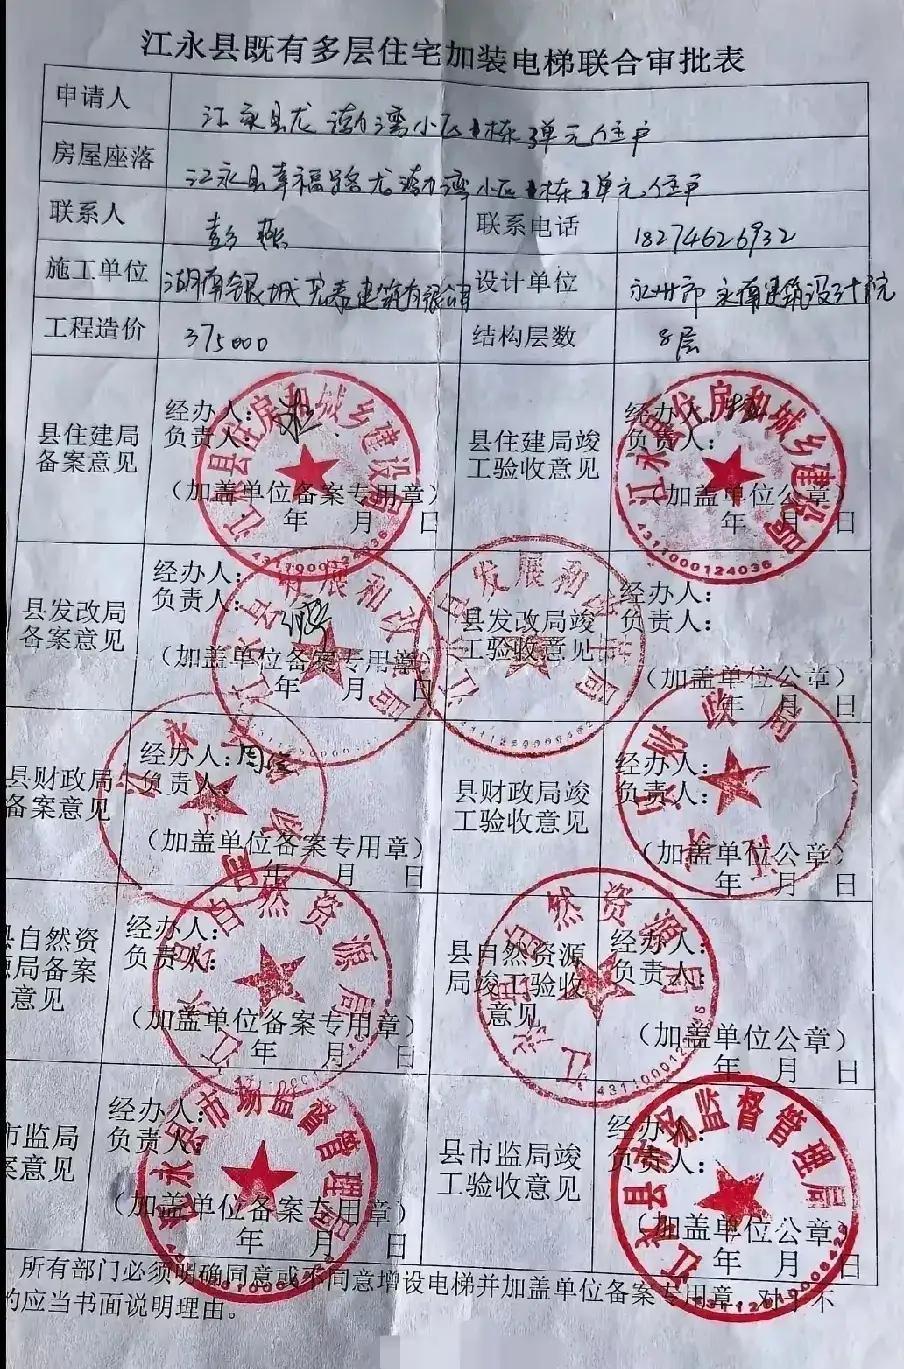 江永县既有多层住宅加装电梯联合审批表
申请人 江永县龙渤湾小区1栋3单元住户
房屋座落 江永县幸福路龙渤湾小区1栋3单元住户
联系人 彭燕 联系电话 18274626932
施工单位 湖南银城 建筑有限公司 设计单位 永州市永博建筑设计院
工程造价 375000 结构层数 8层
县住建局备案意见
经办人:
负责人:
(加盖单位备案专用章)
年 月 日
县住建局竣工验收意见
经办人:
负责人:
(加盖单位公章)
年 月 日
江永县住房和城乡建设局
4311000124036
江永县住房和城乡建设局
4311000124036
县发改局备案意见
经办人:
负责人:
(加盖单位备案专用章)
年 月 日
县发改局竣工验收意见
经办人:
负责人:
(加盖单位公章)
年 月 日
江永县发展和改革局
江永县发展和改革局
县财政局备案意见
经办人:周
负责人:
(加盖单位备案专用章)
年 月 日
县财政局竣工验收意见
经办人:
负责人:
(加盖单位公章)
年 月 日
江永县财政局
江永县财政局
县自然资源局备案意见
经办人:
负责人:
(加盖单位备案专用章)
年 月 日
县自然资源局竣工验收意见
经办人:
负责人:
(加盖单位公章)
年 月 日
江永县自然资源局
江永县自然资源局
市监局
案意见
经办人:
负责人:
(加盖单位备案专用章)
年 月 日
县市监局竣工验收意见
经办人:
负责人:
(加盖单位公章)
年 月 日
江永县市场监督管理局
江永县市场监督管理局
所有部门必须明确同意或不同意增设电梯并加盖单位备案专用章,对于不
的应当书面说明理由。